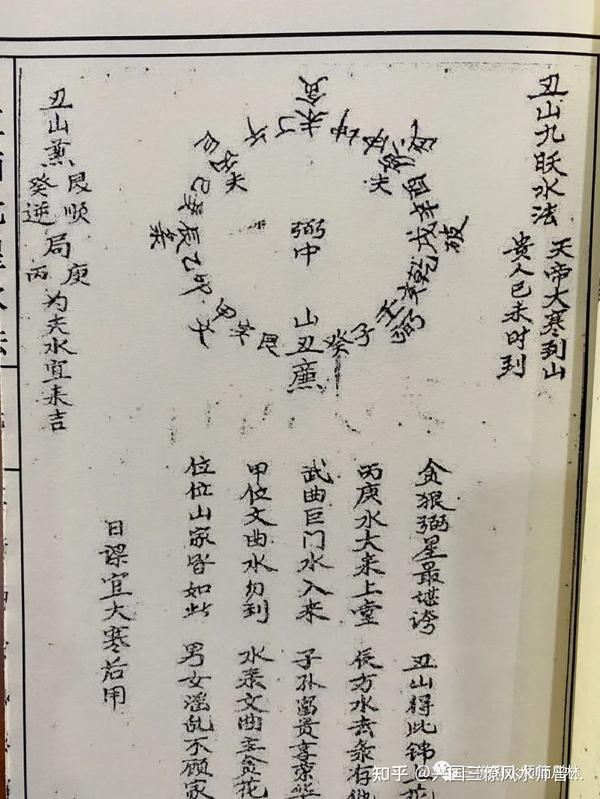 丑山九眹水法
天帝大寒到山
贵人己未时到
贪
未
丁
午
酉
辛
戌
乾
破
壬
弼
子
癸
丑
山
廉
艮
卯
乙
辰
巽
巳
夫
夫
弼
中
丑山蕉
艮顺
癸逆
局
庚
丙
为夫水宜来吉
贪狠弼星最堪誇 丑山得此锦
丙庚水大来上堂 辰方水去
武曲巨门水入来 子孙富贵享荣华
甲位文曲水勿到 水来文曲主贪花
位位山家皆如此 男女淫乱不顾家
日课宜大寒后用
知乎 @兴国三僚风水师曾林